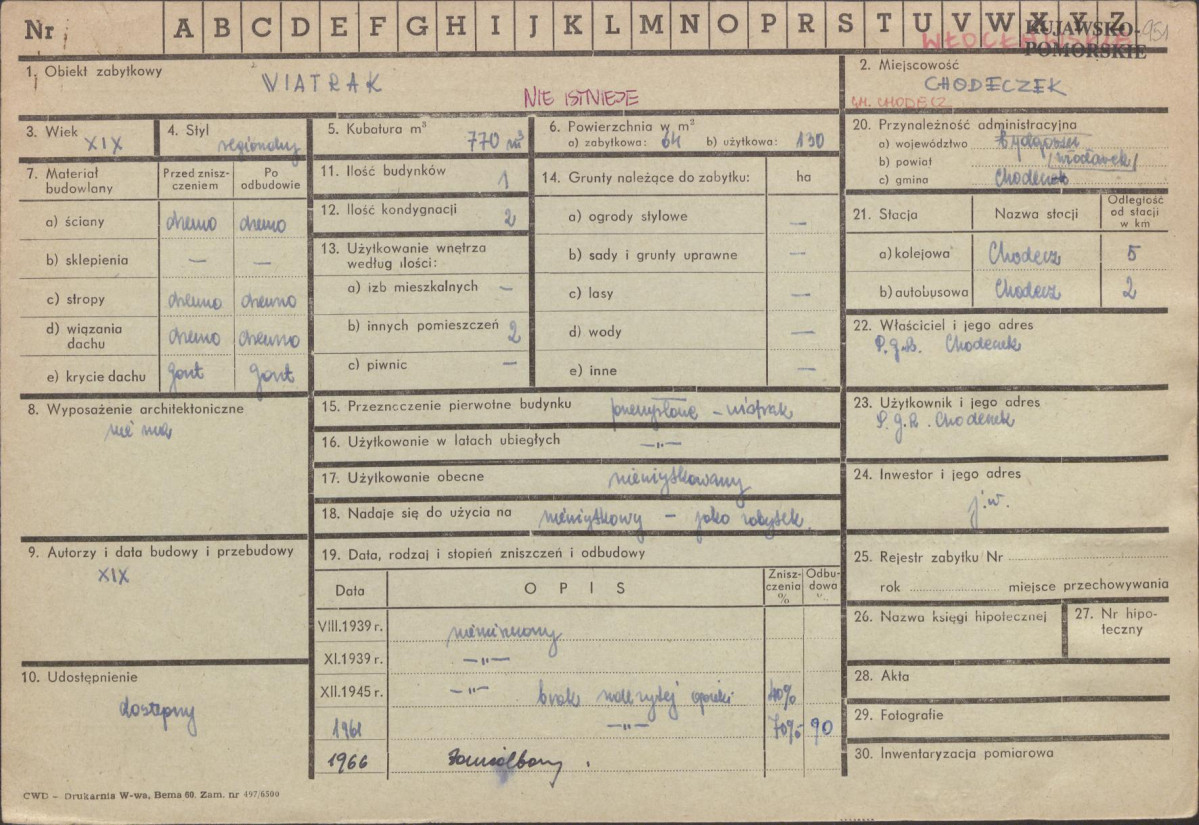 Nr A B C D E F G H I J K L M N O P R S T U V W X Y Z
WŁOCŁAWSKIE KUJAWSKO-POMORSKIE 951
1. Obiekt zabytkowy
WIATRAK
NIE ISTNIEJE
2. Miejscowość
CHODECZEK
GM. CHODECZ
3. Wiek XIX
4. Styl regionalny
5. Kubatura m³ 770 m³
6. Powierzchnia w m²
a) zabytkowa: 64 b) użytkowa: 130
20. Przynależność administracyjna
a) województwo Bydgoszcz
b) powiat /Włocławek/
c) gmina
7. Materiał budowlany
Przed zniszczeniem
Po odbudowie
a) ściany drewno drewno
b) sklepienia — —
c) stropy drewno drewno
d) wiązania dachu drewno drewno
e) krycie dachu gont gont
11. Ilość budynków 1
12. Ilość kondygnacji 2
13. Użytkowanie wnętrza według ilości:
a) izb mieszkalnych —
b) innych pomieszczeń 2
c) piwnic —
14. Grunty należące do zabytku: ha
a) ogrody stylowe —
b) sady i grunty uprawne —
c) lasy —
d) wody —
e) inne —
21. Stacja Nazwa stacji Odległość od stacji w km
a) kolejowa Chodecz 5
b) autobusowa Chodecz 2
22. Właściciel i jego adres
P.G.R. Chodeczek
8. Wyposażenie architektoniczne
nie ma
15. Przeznaczenie pierwotne budynku przemysłowe - wiatrak
16. Użytkowanie w latach ubiegłych —"—
17. Użytkowanie obecne nieużytkowany
18. Nadaje się do użycia na nieużytkowy - jako zabytek.
23. Użytkownik i jego adres
P.G.R. Chodeczek
24. Inwestor i jego adres
j.w.
9. Autorzy i data budowy i przebudowy
XIX
19. Data, rodzaj i stopień zniszczeń i odbudowy
Data OPIS Zniszczenia % Odbudowa %
VIII.1939 r. niezniszczony
XI.1939 r. —"—
XII.1945 r. —"— brak należytej opieki 40%
1961 —"— 70% 90
1966
25. Rejestr zabytku Nr
rok miejsce przechowywania
26. Nazwa księgi hipotecznej
27. Nr hipoteczny
10. Udostępnienie
dostępny
28. Akta
29. Fotografie
30. Inwentaryzacja pomiarowa
CWD - Drukarnia W-wa, Bema 60. Zam. nr 497/6500